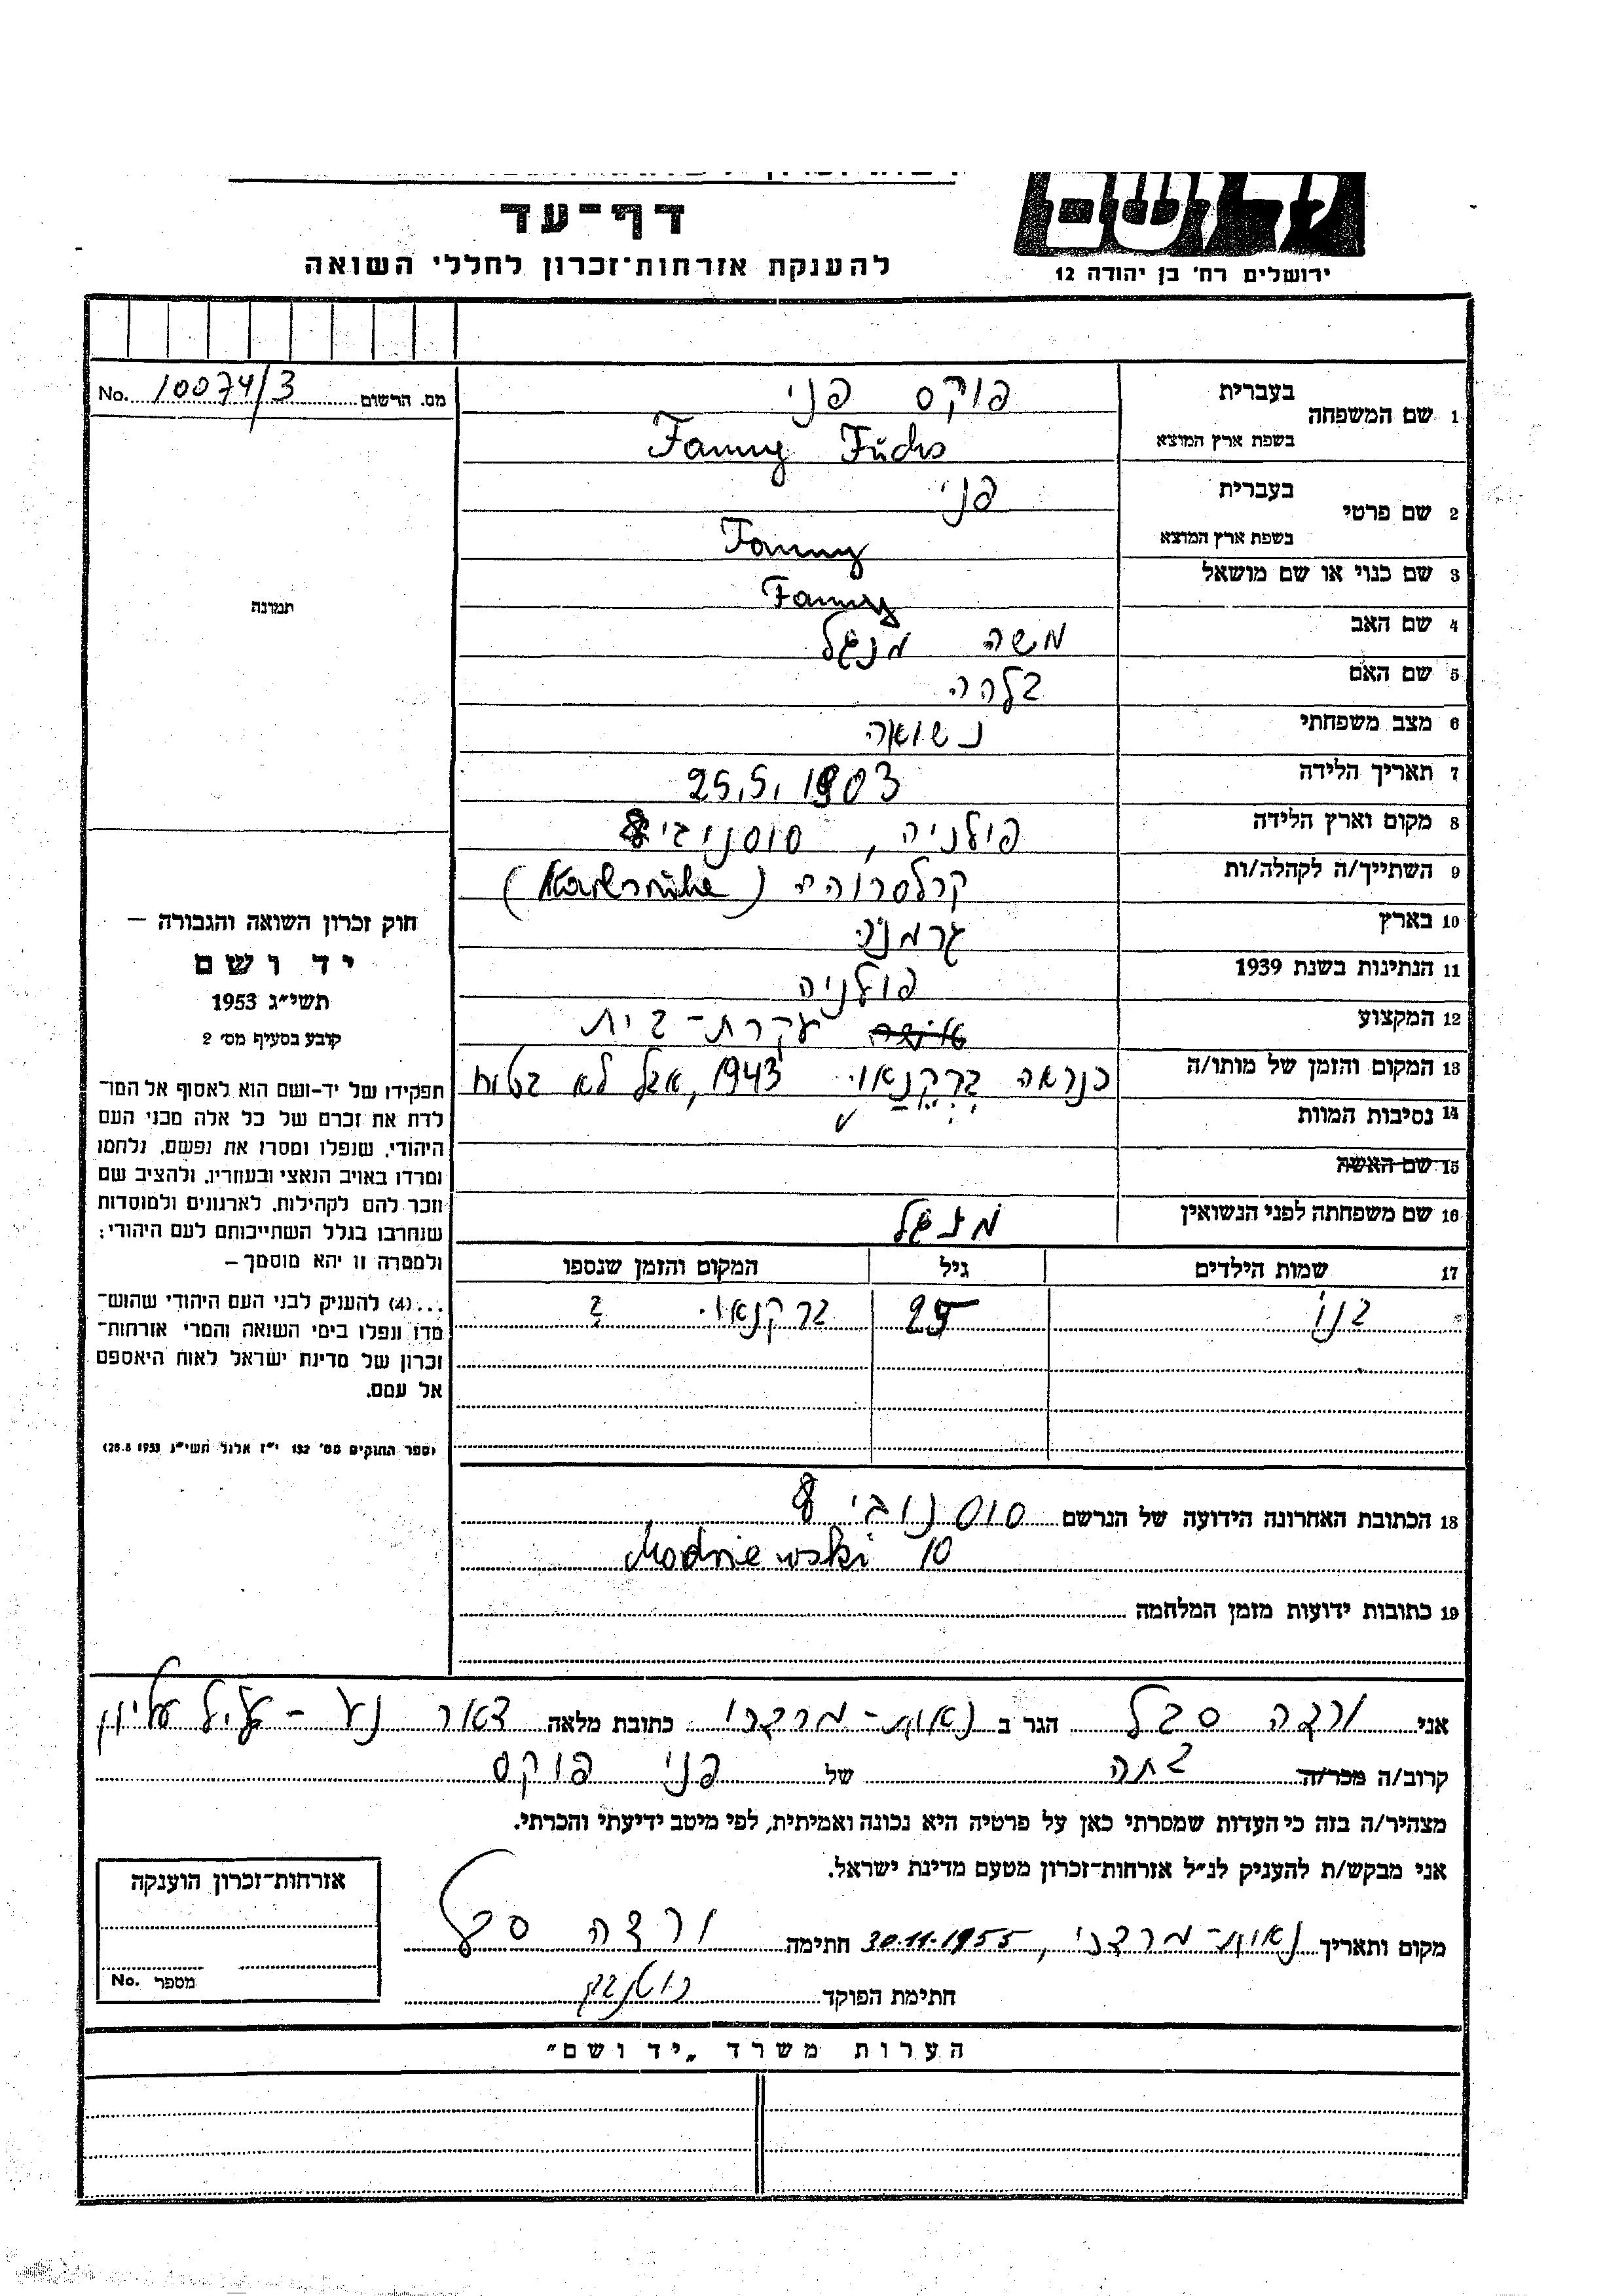 דף-עד
להענקת אזרחות־זכרון לחללי השואה
ושם
ירושלים רח' בן יהודה 12
מס. הרשום 10074/3 No.
תמונה
חוק זכרון השואה והגבורה —
יד ושם
תשי"ג 1953
קובע בסעיף מס' 2
תפקידו של יד-ושם הוא לאסוף אל המו־
לדת את זכרם של כל אלה מבני העם
היהודי, שנפלו ומסרו את נפשם, נלחמו
ומרדו באויב הנאצי ובעוזריו, ולהציב שם
וזכר להם לקהילות, לארגונים ולמוסדות
שנחרבו בגלל השתייכותם לעם היהודי;
ולמטרה זו יהא מוסמך —
...(4) להענוק לבני העם היהודי שהוש־
מדו ונפלו בימי השואה והמרי אזרחות־
זכרון של מדינת ישראל לאות היאספם
אל עמם.
(ספר החוקים מס' 132 י"ז אלול תשי"ג 28.8.1953)
1 שם המשפחה בעברית פוקס פני
בשפת ארץ המוצא Fanny Fuchs
2 שם פרטי בעברית פני
בשפת ארץ המוצא Fanny
3 שם כנוי או שם מושאל Fanny
4 שם האב משה מנגל
5 שם האם בלהה
6 מצב משפחתי נשואה
7 תאריך הלידה 25.5.1903
8 מקום וארץ הלידה פולניה, סוסנוביץ
9 השתייך/ה לקהלה/ות קרלסרוהה (Karlsruhe)
10 בארץ גרמניה
11 הנתינות בשנת 1939 פולניה
12 המקצוע עקרת-בית
13 המקום והזמן של מותו/ה כנראה ברקנאוי 1943, אבל לא בטוח
14 נסיבות המוות
15 שם האשה
16 שם משפחתה לפני הנשואין מנגל
17 שמות הילדים גיל המקום והזמן שנספו
בנו 25 ברקנאוי ?
18 הכתובת האחרונה הידועה של הנרשם סוסנוביץ
Modrzewski 10
19 כתובות ידועות מזמן המלחמה
אני ורדה סבל הגר ב נאות-מרדכי כתובת מלאה דאר נע - גליל עליון
קרוב/ה מכר/ה בתה של פני פוקס
מצהיר/ה בזה כי העדות שמסרתי כאן על פרטיה היא נכונה ואמיתית, לפי מיטב ידיעתי והכרתי.
אני מבקש/ת להעניק לנ"ל אזרחות־זכרון מטעם מדינת ישראל.
מקום ותאריך נאות-מרדכי, 30.11.1955 חתימה ורדה סבל
חתימת הפוקד
אזרחות־זכרון הוענקה
מספר No.
הערות משרד "יד ושם"